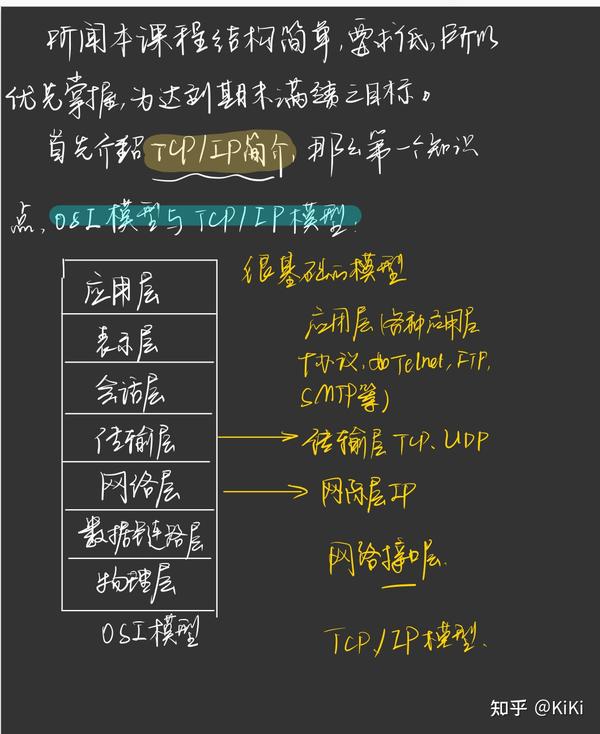 所闻本课程结构简单,要求低,所以
优先掌握,为达到期末满绩之目标。
首先介绍TCP/IP简介,那么第一个知识
点,OSI模型与TCP/IP模型.
很基础的模型
应用层
表示层
会话层
传输层
网络层
数据链路层
物理层
OSI模型
应用层(各种应用层
协议,如Telnet,FTP,
SMTP等)
传输层TCP、UDP
网际层IP
网络接口层.
TCP/IP模型.
知乎 @KiKi